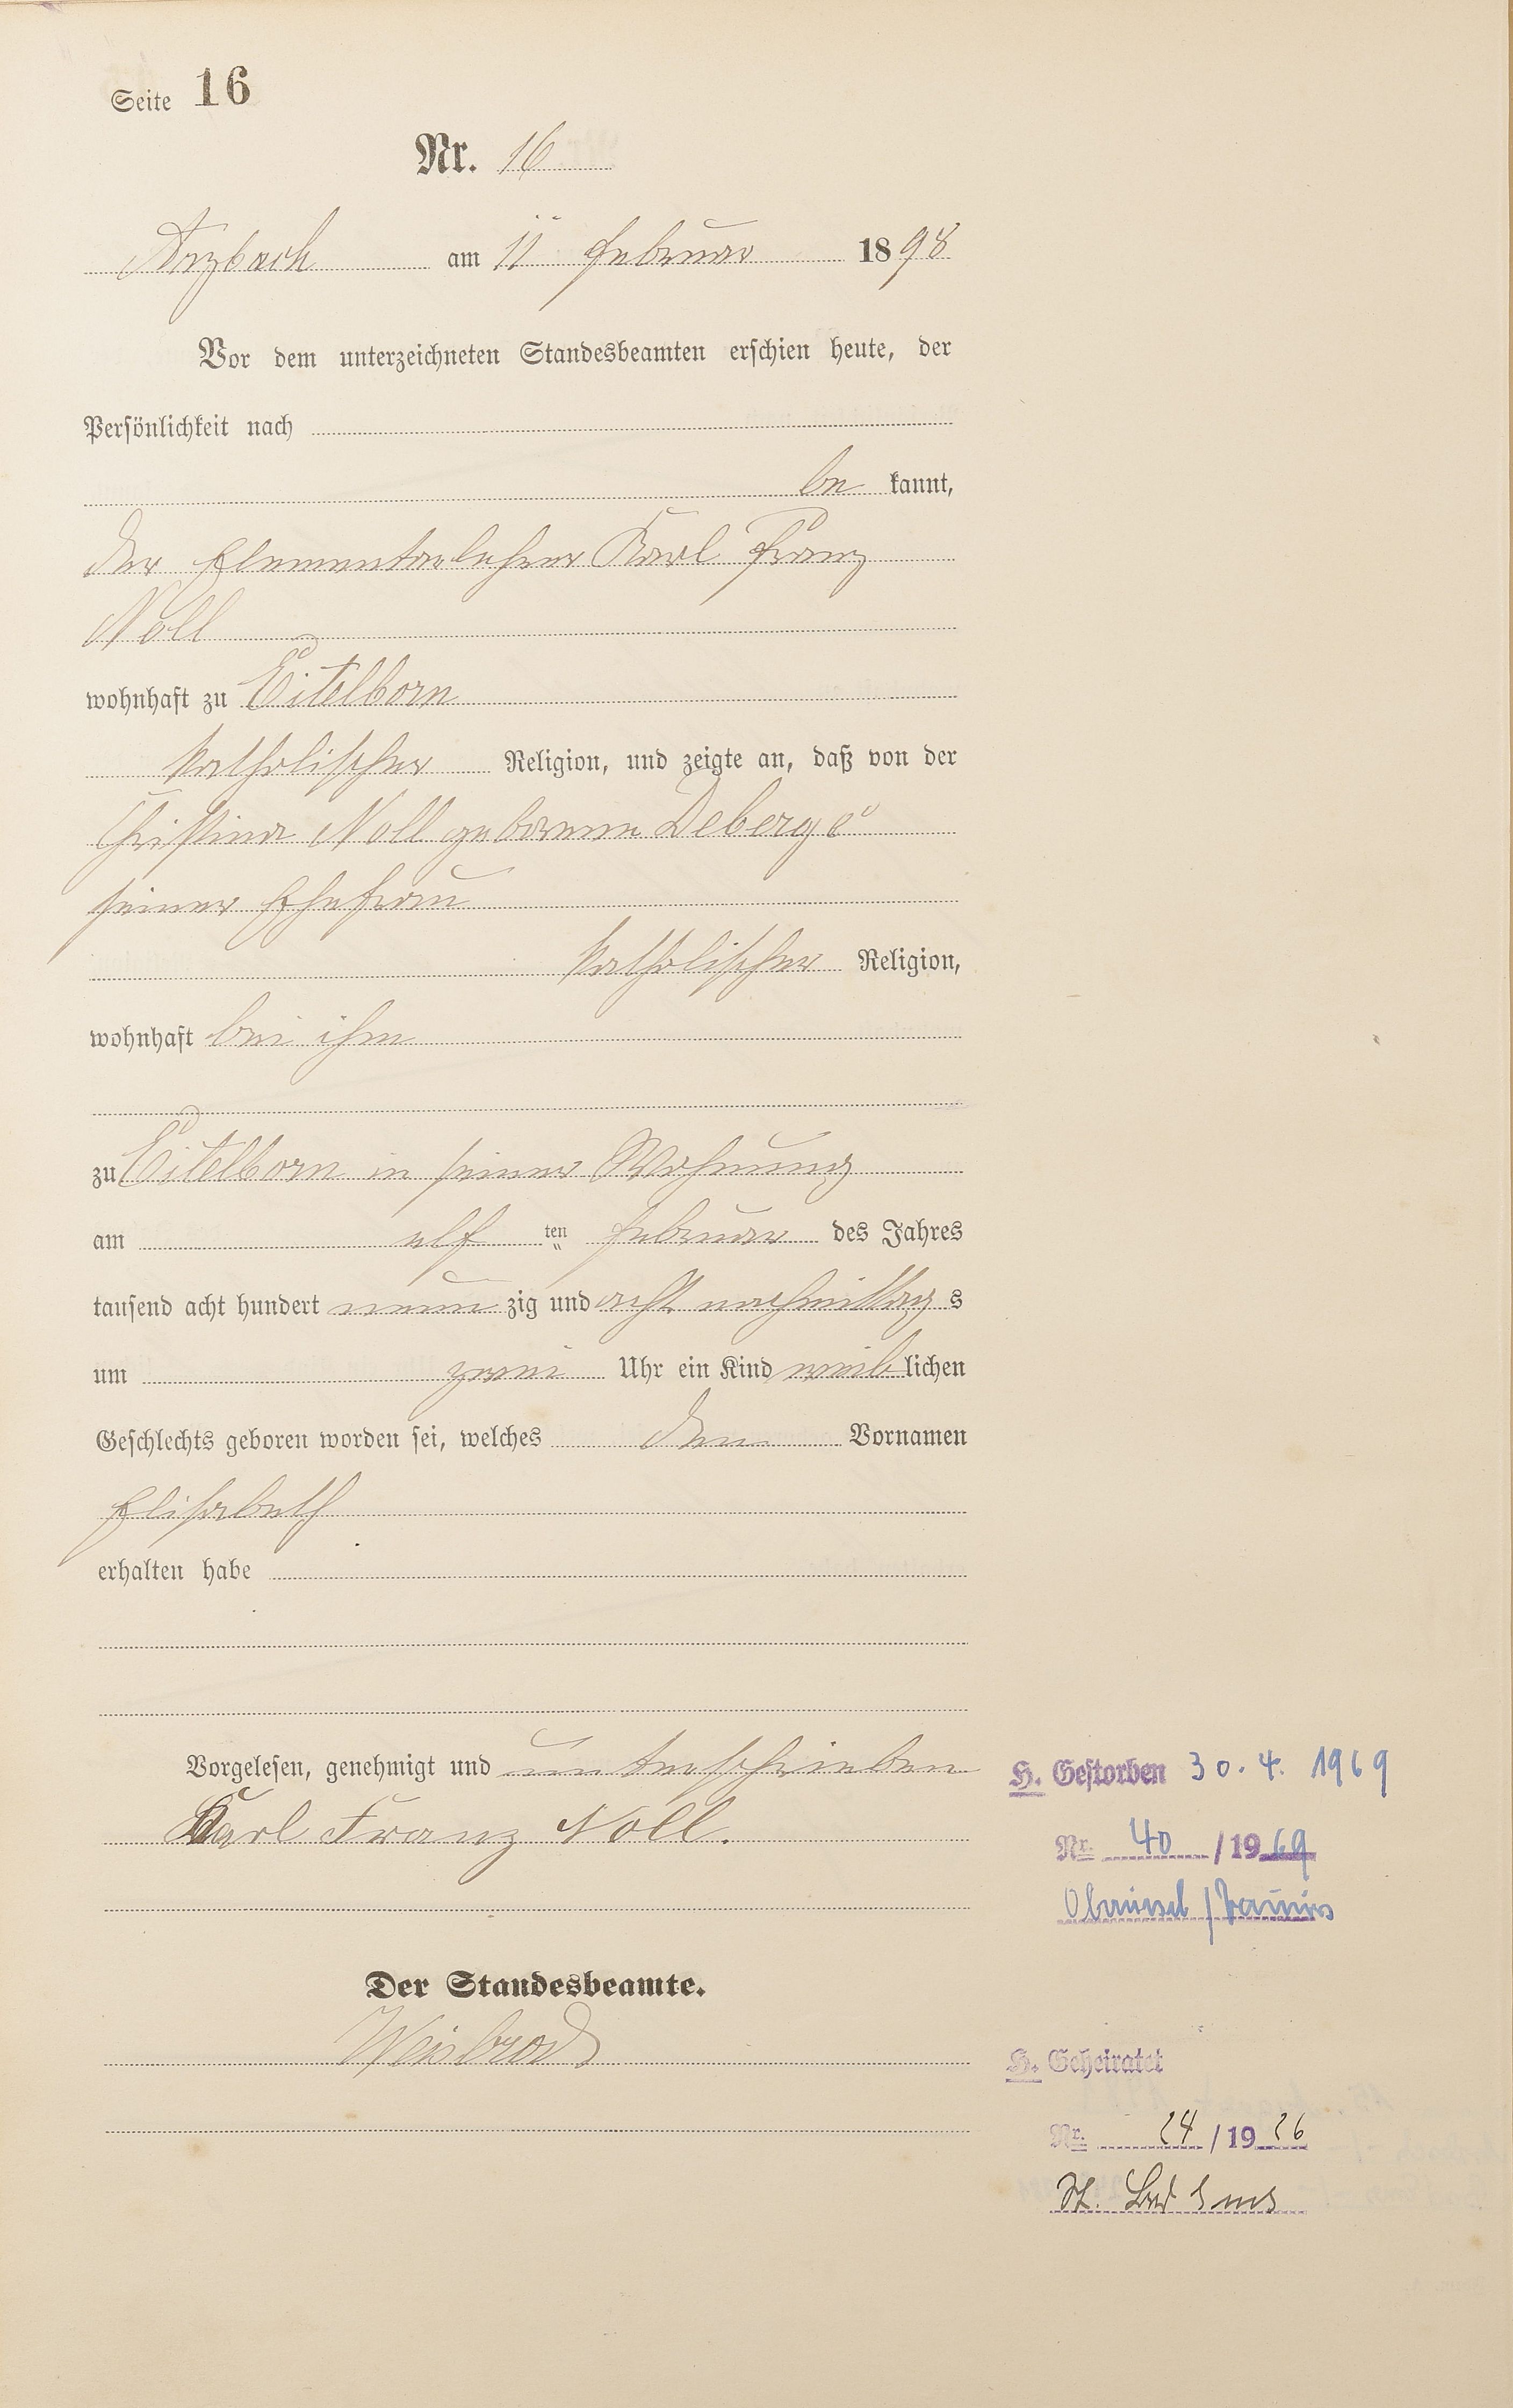 Seite 16
Nr. 16
Arzbach am 11 Februar 1898
Vor dem unterzeichneten Standesbeamten erschien heute, der
Persönlichkeit nach
be kannt,
der Elementarlehrer Karl Franz
Noll
wohnhaft zu Eitelborn
katholischer Religion, und zeigte an, daß von der
Christina Noll geborenen Debergé
seiner Ehefrau
katholischer Religion,
wohnhaft bei ihm
zu Eitelborn in seiner Wohnung
am elf ten Februar des Jahres
tausend acht hundert neun zig und acht nachmittag s
um zwei Uhr ein Kind weib lichen
Geschlechts geboren worden sei, welches den Vornamen
Elisabeth
erhalten habe
Vorgelesen, genehmigt und unterschrieben
Karl Franz Noll.
Der Standesbeamte.
Weisbrod
H. Gestorben 30.4.1969
Nr. 40 / 1969
Oberursel / Taunus
H. Geheiratet
Nr. 24 / 1926
St. Bad Ems